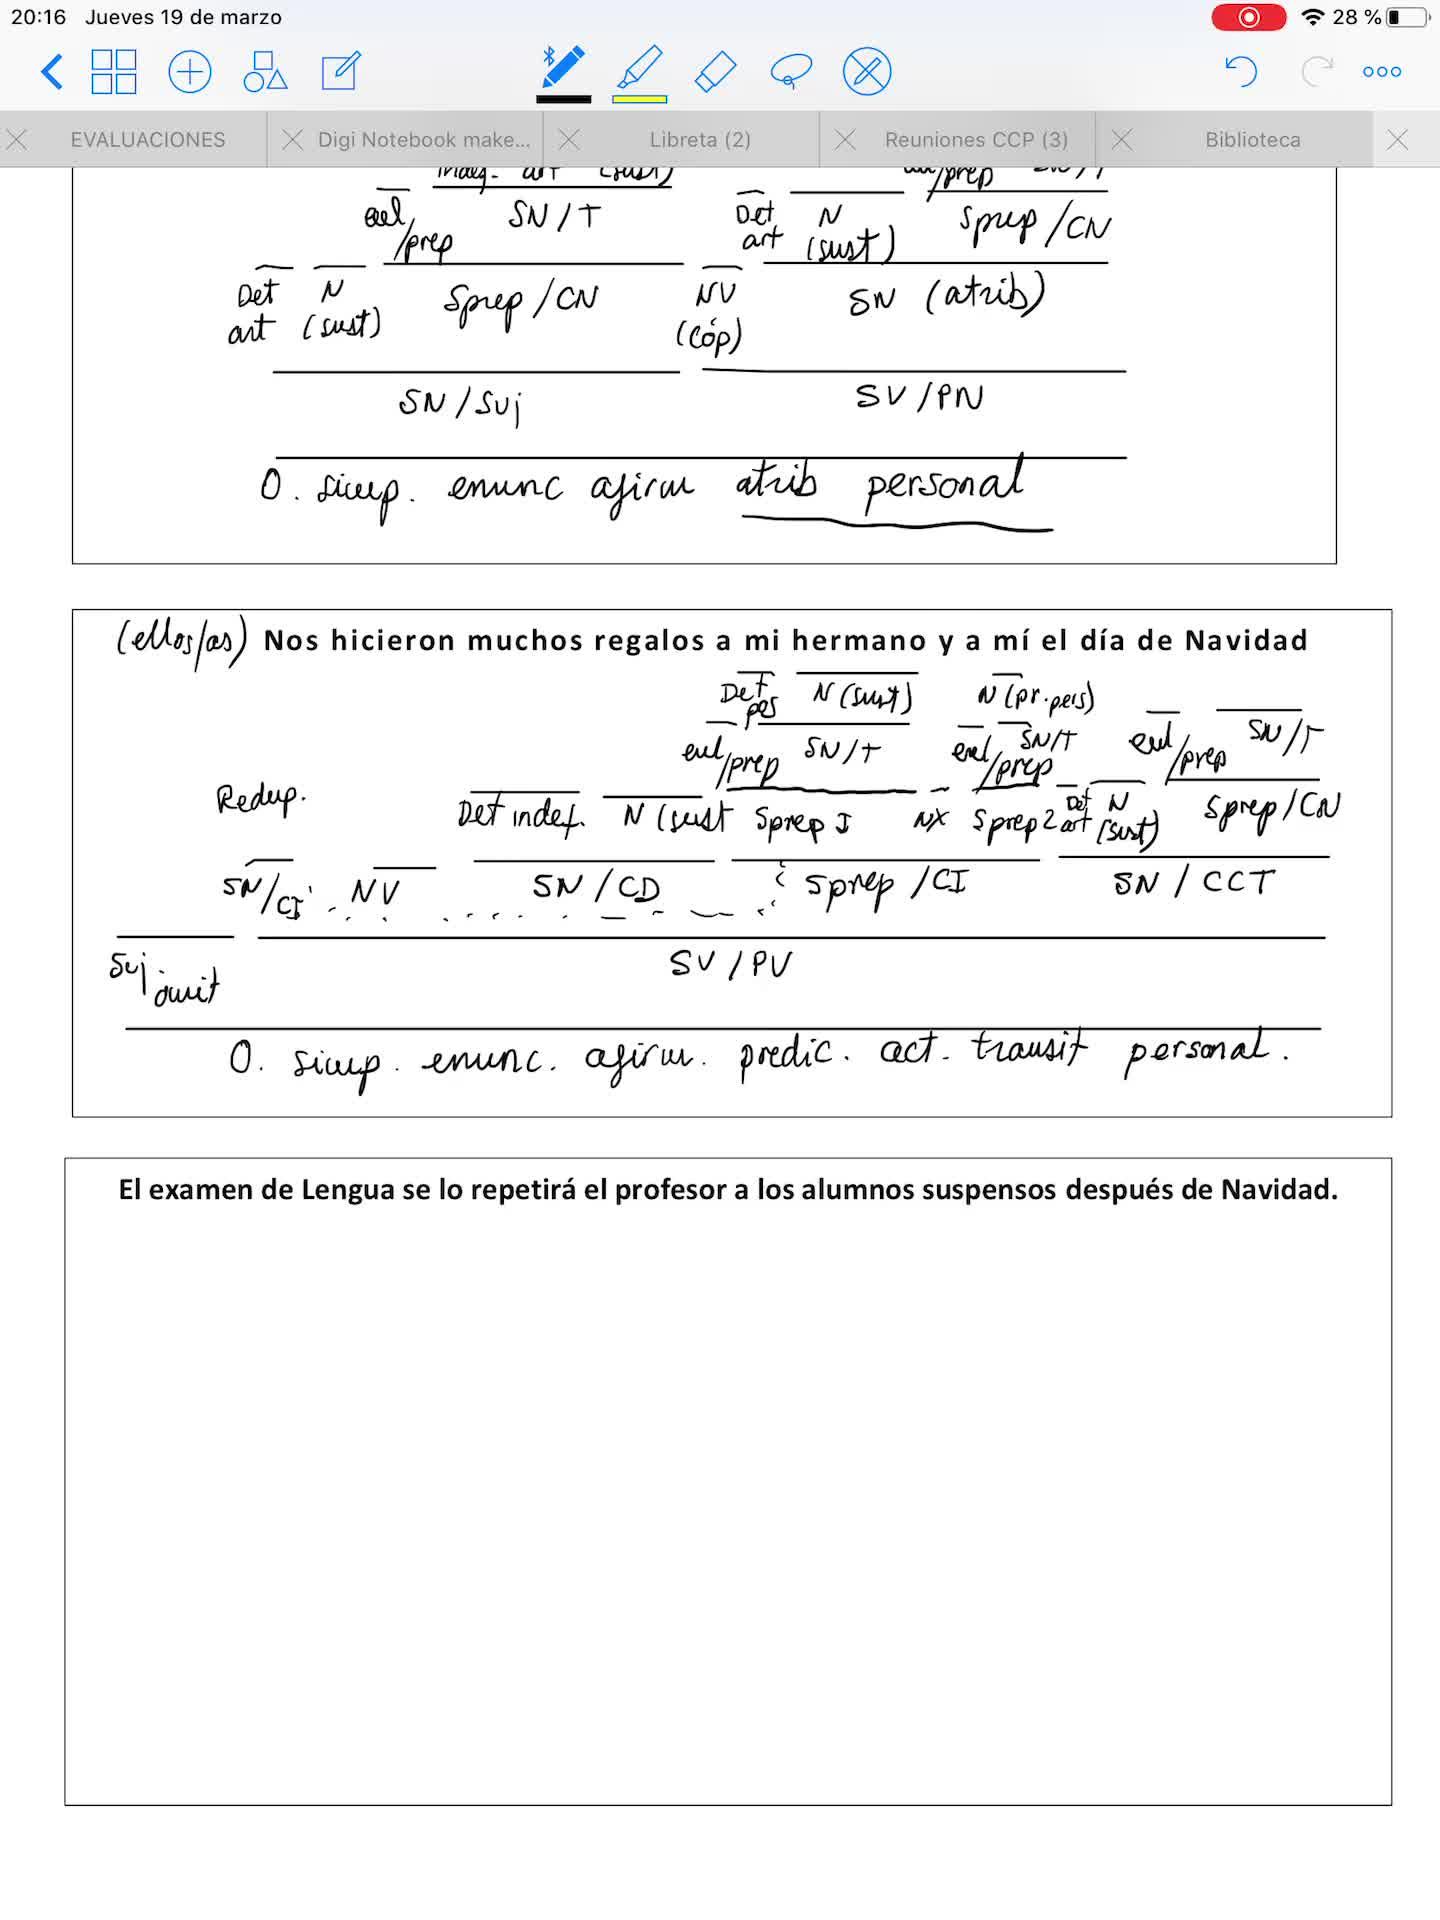 20:16 Jueves 19 de marzo 28 %
EVALUACIONES Digi Notebook make... Libreta (2) Reuniones CCP (3) Biblioteca
art (sust) /prep
enl/prep SN/T Det art N (sust) Sprep/CN
Det art N (sust) Sprep/CN NV (cóp) SN (atrib)
SN/Suj SV/PN
O. simp. enunc afirm atrib personal
(ellos/as) Nos hicieron muchos regalos a mi hermano y a mí el día de Navidad
Det pos N (sust) N (pr. pers)
enl/prep SN/T enl/prep SN/T enl/prep SN/T
Redup. Det indef. N (sust Sprep 1 NX Sprep 2 Det art N (sust) Sprep/CN
SN/CI NV SN/CD Sprep/CI SN/CCT
Suj omit SV/PV
O. simp. enunc. afirm. predic. act. transit personal.
El examen de Lengua se lo repetirá el profesor a los alumnos suspensos después de Navidad.